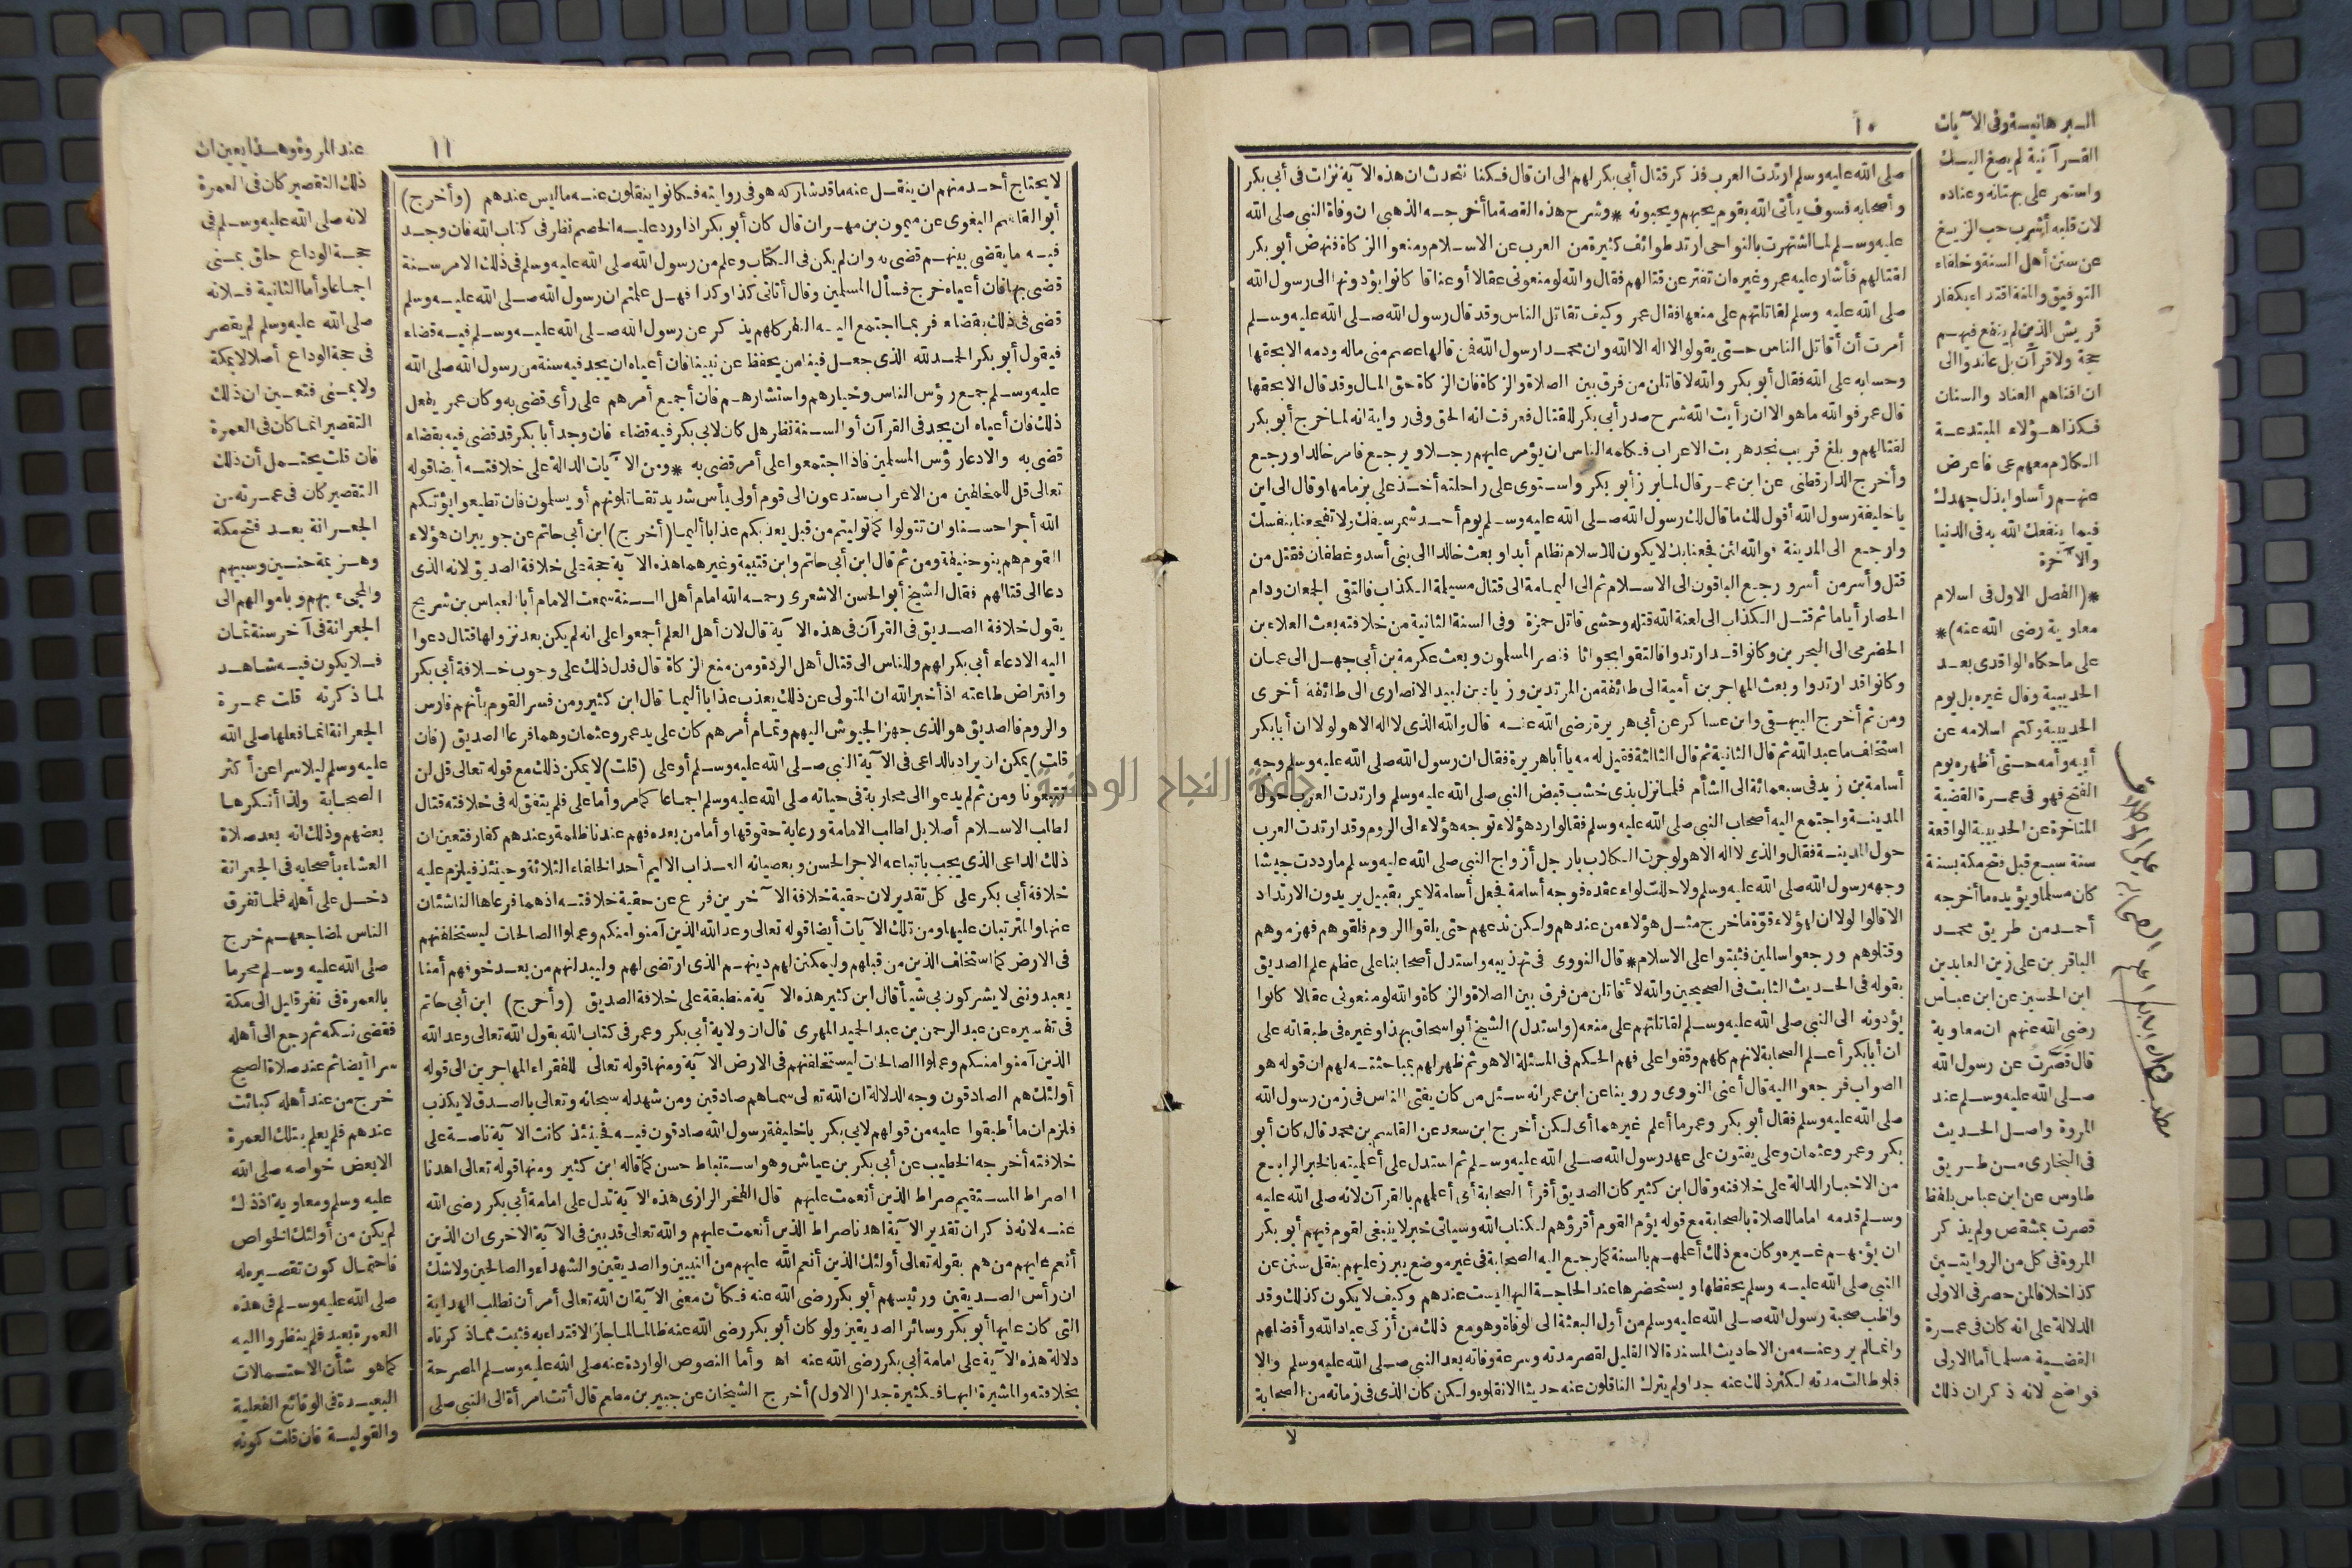 ١٠
صلى الله عليه وسلم ارتدت العرب فذكر قتال أبي بكر لهم الى ان قال فكنا نتحدث ان هذه الآية نزلت في أبي بكر
وأصحابه فسوف يأتي الله بقوم يحبهم ويحبونه * وشرح هذه القصة ما أخرجه الذهبي ان وفاة النبي صلى الله
عليه وسلم لما اشتهرت بالنواحي ارتد طوائف كثيرة من العرب عن الاسلام ومنعوا الزكاة فنهض أبو بكر
لقتالهم فأشار عليه عمر وغيره ان تفتر عن قتالهم فقال والله لو منعوني عقالا أو عناقا كانوا يؤدونها الى رسول الله
صلى الله عليه وسلم لقاتلتهم على منعها فقال عمر وكيف تقاتل الناس وقد قال رسول الله صلى الله عليه وسلم
أمرت أن أقاتل الناس حتى يقولوا لا اله الا الله وان محمدا رسول الله فمن قالها عصم مني ماله ودمه الا بحقها
وحسابه على الله فقال أبو بكر والله لاقاتلن من فرق بين الصلاة والزكاة فان الزكاة حق المال وقد قال الا بحقها
قال عمر فو الله ما هو الا ان رأيت الله شرح صدر أبي بكر للقتال فعرفت انه الحق وفي رواية انه لما خرج أبو بكر
لقتالهم وبلغ قريب نجد هربت الاعراب فكلمه الناس ان يؤمر عليهم رجلا ويرجع فامر خالدا ورجع
وأخرج الدارقطني عن ابن عمر قال لما برز أبو بكر واستوى على راحلته أخذ علي بزمامها وقال الى اين
يا خليفة رسول الله أقول لك ما قال لك رسول الله صلى الله عليه وسلم يوم أحد شمر سيفك ولا تفجعنا بنفسك
وارجع الى المدينة فو الله لئن فجعنا بك لا يكون للاسلام نظام أبدا وبعث خالدا الى بني أسد وغطفان فقتل من
قتل وأسر من أسر ورجع الباقون الى الاسلام ثم الى اليمامة الى قتال مسيلمة الكذاب فالتقى الجمعان ودام
الحصار أياما ثم قتل الكذاب الى لعنة الله قتله وحشي قاتل حمزة وفي السنة الثانية من خلافته بعث العلاء بن
الحضرمي الى البحرين وكانوا قد ارتدوا فالتقوا بجواثا فنصر المسلمون وبعث عكرمة بن أبي جهل الى عمان
وكانوا قد ارتدوا وبعث المهاجر بن أمية الى طائفة من المرتدين وزياد بن لبيد الانصاري الى طائفة أخرى
ومن ثم أخرج البيهقي وابن عساكر عن أبي هريرة رضى الله عنه قال والله الذي لا اله الا هو لولا ان أبا بكر
استخلف ما عبد الله ثم قال الثانية ثم قال الثالثة فقيل له مه يا أبا هريرة فقال ان رسول الله صلى الله عليه وسلم وجه
أسامة بن زيد في سبعمائة الى الشأم فلما نزل بذي خشب قبض النبي صلى الله عليه وسلم وارتدت العرب حول
المدينة واجتمع اليه أصحاب النبي صلى الله عليه وسلم فقالوا رد هؤلاء توجه هؤلاء الى الروم وقد ارتدت العرب
حول المدينة فقال والذي لا اله الا هو لو جرت الكلاب بارجل أزواج النبي صلى الله عليه وسلم ما رددت جيشا
وجهه رسول الله صلى الله عليه وسلم ولا حللت لواء عقده فوجه أسامة فجعل أسامة لا يمر بقبيل يريدون الارتداد
الا قالوا لولا ان لهؤلاء قوة ما خرج مثل هؤلاء من عندهم ولكن ندعهم حتى يلقوا الروم فلقوهم فهزموهم
وقتلوهم ورجعوا سالمين فثبتوا على الاسلام * قال النووي في تهذيبه واستدل أصحابنا على عظم علم الصديق
بقوله في الحديث الثابت في الصحيحين والله لأقاتلن من فرق بين الصلاة والزكاة والله لو منعوني عقالا كانوا
يؤدونه الى النبي صلى الله عليه وسلم لقاتلتهم على منعه (واستدل) الشيخ أبو اسحاق بهذا وغيره في طبقاته على
ان أبا بكر أعلم الصحابة لانهم كلهم وقفوا على فهم الحكم في المسئلة الا هو ثم ظهر لهم بمباحثته لهم ان قوله هو
الصواب فرجعوا اليه قال أعني النووي وروينا عن ابن عمر انه سئل من كان يفتي الناس في زمن رسول الله
صلى الله عليه وسلم فقال أبو بكر وعمر ما أعلم غيرهما أي لكن أخرج ابن سعد عن القاسم بن محمد قال كان أبو
بكر وعمر وعثمان وعلي يفتون على عهد رسول الله صلى الله عليه وسلم ثم استدل على أعلميته بالخبر الرابع
من الاخبار الدالة على خلافته وقال ابن كثير كان الصديق أقرأ الصحابة أي أعلمهم بالقرآن لانه صلى الله عليه
وسلم قدمه اماما للصلاة بالصحابة مع قوله يؤم القوم أقرؤهم لكتاب الله وسيأتي خبر لا ينبغي لقوم فيهم أبو بكر
ان يؤمهم غيره وكان مع ذلك أعلمهم بالسنة كما رجع اليه الصحابة في غير موضع يبرز عليهم بنقل سنن عن
النبي صلى الله عليه وسلم يحفظها ويستحضرها عند الحاجة اليها ليست عندهم وكيف لا يكون كذلك وقد
واظب صحبة رسول الله صلى الله عليه وسلم من أول البعثة الى الوفاة وهو مع ذلك من أزكى عباد الله وأفضلهم
وانما لم يرو عنه من الاحاديث المسندة الا القليل لقصر مدته وسرعة وفاته بعد النبي صلى الله عليه وسلم والا
فلو طالت مدته لكثر ذلك عنه جدا ولم يترك الناقلون عنه حديثا الا نقلوه ولكن كان الذي في زمانه من الصحابة
لا
البرهانية وفي الآيات
القرآنية لم يصغ اليك
واستمر على بهتانه وعناده
لان قلبه أشرب حب الزيغ
عن سنن أهل السنة وخلفاء
التوفيق والمنة اقتداء بكفار
قريش الذين لم ينفع فيهم
حجة ولا قرآن بل عاندوا الى
ان افناهم العناد والسنان
فكذا هؤلاء المبتدعة
الكلام معهم عي فاعرض
عنهم رأسا وابذل جهدك
فيما ينفعك الله به في الدنيا
والآخرة
*(الفصل الاول في اسلام
معاوية رضى الله عنه)*
على ما حكاه الواقدي بعد
الحديبية وقال غيره بل يوم
الحديبية وكتم اسلامه عن
أبيه وأمه حتى أظهره يوم
الفتح فهو في عمرة القضية
المتاخرة عن الحديبية الواقعة
سنة سبع قبل فتح مكة بسنة
كان مسلما ويؤيده ما أخرجه
أحمد من طريق محمد
الباقر بن على زين العابدين
ابن الحسين عن ابن عباس
رضى الله عنهم ان معاوية
قال قصرت عن رسول الله
صلى الله عليه وسلم عند
المروة واصل الحديث
في البخاري من طريق
طاوس عن ابن عباس بلفظ
قصرت بمشقص ولم يذكر
المروة في كل من الروايتين
كذا خلافا لمن حصر في الاولى
الدلالة على انه كان في عمرة
القضية مسلما أما الاولى
فواضح لانه ذكر ان ذلك
١١
لا يحتاج أحد منهم ان ينقل عنه ما قد شاركه هو في روايته فكانوا ينقلون عنه ما ليس عندهم (وأخرج)
أبو القاسم البغوي عن ميمون بن مهران قال كان أبو بكر اذا ورد عليه الخصم نظر في كتاب الله فان وجد
فيه ما يقضي بينهم قضى به وان لم يكن في الكتاب وعلم من رسول الله صلى الله عليه وسلم في ذلك الامر سنة
قضى بها فان أعياه خرج فسأل المسلمين وقال أتاني كذا وكذا فهل علمتم ان رسول الله صلى الله عليه وسلم
قضى في ذلك بقضاء فربما اجتمع اليه النفر كلهم يذكر عن رسول الله صلى الله عليه وسلم فيه قضاء
فيقول أبو بكر الحمد لله الذي جعل فينا من يحفظ عن نبينا فان أعياه ان يجد فيه سنة من رسول الله صلى الله
عليه وسلم جمع رؤس الناس وخيارهم واستشارهم فان أجمع أمرهم على رأى قضى به وكان عمر يفعل
ذلك فان أعياه ان يجد في القرآن أو السنة نظر هل كان لابي بكر فيه قضاء فان وجد أبا بكر قد قضى فيه بقضاء
قضى به والا دعا رؤس المسلمين فاذا اجتمعوا على أمر قضى به * ومن الآيات الدالة على خلافته أيضا قوله
تعالى قل للمخلفين من الاعراب ستدعون الى قوم أولى بأس شديد تقاتلونهم أو يسلمون فان تطيعوا يؤتكم
الله أجرا حسنا وان تتولوا كما توليتم من قبل يعذبكم عذابا أليما (أخرج) ابن أبي حاتم عن جويبر ان هؤلاء
القوم هم بنو حنيفة ومن ثم قال ابن أبي حاتم وابن قتيبة وغيرهما هذه الآية حجة على خلافة الصديق لانه الذي
دعا الى قتالهم فقال الشيخ أبو الحسن الاشعري رحمه الله امام أهل السنة سمعت الامام أبا العباس بن شريح
يقول خلافة الصديق في القرآن في هذه الآية قال لان أهل العلم أجمعوا على انه لم يكن بعد نزولها قتال دعوا
اليه الا دعاء أبي بكر لهم وللناس الى قتال أهل الردة ومن منع الزكاة قال فدل ذلك على وجوب خلافة أبي بكر
وافتراض طاعته اذ أخبر الله ان المتولى عن ذلك يعذب عذابا أليما قال ابن كثير ومن فسر القوم بأنهم فارس
والروم فالصديق هو الذي جهز الجيوش اليهم وتمام أمرهم كان على يد عمر وعثمان وهما فرعا الصديق (فان
قلت) يمكن ان يراد بالداعي في الآية النبي صلى الله عليه وسلم أو علي (قلت) لا يمكن ذلك مع قوله تعالى قل لن
تتبعونا ومن ثم لم يدعوا الى محاربة في حياته صلى الله عليه وسلم اجماعا كما مر وأما علي فلم يتفق له في خلافته قتال
لطلب الاسلام أصلا بل لطلب الامامة ورعاية حقوقها وأما من بعده فهم عندنا ظلمة وعندهم كفار فتعين ان
ذلك الداعي الذي يجب باتباعه الاجر الحسن وبعصيانه العذاب الاليم أحد الخلفاء الثلاثة وحينئذ فيلزم عليه
خلافة أبي بكر على كل تقدير لان حقية خلافة الآخرين فرع عن حقية خلافته اذ هما فرعاها الناشئان
عنها والمترتبان عليها ومن تلك الآيات أيضا قوله تعالى وعد الله الذين آمنوا منكم وعملوا الصالحات ليستخلفنهم
في الارض كما استخلف الذين من قبلهم وليمكنن لهم دينهم الذي ارتضى لهم وليبدلنهم من بعد خوفهم أمنا
يعبدونني لا يشركون بي شيأ قال ابن كثير هذه الآية منطبقة على خلافة الصديق (وأخرج) ابن أبي حاتم
في تفسيره عن عبد الرحمن بن عبد الحميد المهري قال ان ولاية أبي بكر وعمر في كتاب الله يقول الله تعالى وعد الله
الذين آمنوا منكم وعملوا الصالحات ليستخلفنهم في الارض الآية ومنها قوله تعالى للفقراء المهاجرين الى قوله
أولئك هم الصادقون وجه الدلالة ان الله تعالى سماهم صادقين ومن شهد له سبحانه وتعالى بالصدق لا يكذب
فلزم ان ما أطبقوا عليه من قولهم لابي بكر يا خليفة رسول الله صادقون فيه فحينئذ كانت الآية ناصة على
خلافته أخرجه الخطيب عن أبي بكر بن عياش وهو استنباط حسن كما قاله ابن كثير ومنها قوله تعالى اهدنا
الصراط المستقيم صراط الذين أنعمت عليهم قال الفخر الرازي هذه الآية تدل على امامة أبي بكر رضى الله
عنه لانه ذكر ان تقدير الآية اهدنا صراط الذين أنعمت عليهم والله تعالى قد بين في الآية الاخرى ان الذين
أنعم عليهم من هم بقوله تعالى أولئك الذين أنعم الله عليهم من النبيين والصديقين والشهداء والصالحين ولا شك
ان رأس الصديقين ورئيسهم أبو بكر رضى الله عنه فكأن معنى الآية ان الله تعالى أمر أن نطلب الهداية
التي كان عليها أبو بكر وسائر الصديقين ولو كان أبو بكر رضى الله عنه ظالما لما جاز الاقتداء به فثبت مما ذكرناه
دلالة هذه الآية على امامة أبي بكر رضى الله عنه اه وأما النصوص الواردة عنه صلى الله عليه وسلم المصرحة
بخلافته والمشيرة اليها فكثيرة جدا (الاول) أخرج الشيخان عن جبير بن مطعم قال أتت امرأة الى النبي صلى
عند المروة وهذا يعين ان
ذلك التقصير كان في العمرة
لانه صلى الله عليه وسلم في
حجة الوداع حلق بمنى
اجماعا وأما الثانية فلانه
صلى الله عليه وسلم لم يقصر
في حجة الوداع أصلا لا بمكة
ولا بمنى فتعين ان ذلك
التقصير انما كان في العمرة
فان قلت يحتمل أن ذلك
التقصير كان في عمرته من
الجعرانة بعد فتح مكة
وهزيمة حنين وسبيهم
والمجيء بهم وباموالهم الى
الجعرانة في آخر سنة ثمان
فلا يكون فيه شاهد
لما ذكرته قلت عمرة
الجعرانة انما فعلها صلى الله
عليه وسلم ليلا سرا عن أكثر
الصحابة ولذا أنكرها
بعضهم وذلك انه بعد صلاة
العشاء بأصحابه في الجعرانة
دخل على أهله فلما تفرق
الناس لمضاجعهم خرج
صلى الله عليه وسلم محرما
بالعمرة في نفر قليل الى مكة
فقضى نسكه ثم رجع الى أهله
سرا أيضا ثم عند صلاة الصبح
خرج من عند أهله كبائت
عندهم فلم يعلم بتلك العمرة
الا بعض خواصه صلى الله
عليه وسلم ومعاوية اذ ذاك
لم يكن من أولئك الخواص
فاحتمال كون تقصيره له
صلى الله عليه وسلم في هذه
العمرة بعيد فلم ينظروا اليه
كما هو شأن الاحتمالات
البعيدة في الوقائع الفعلية
والقولية فان قلت كونه
جامعة النجاح الوطنية